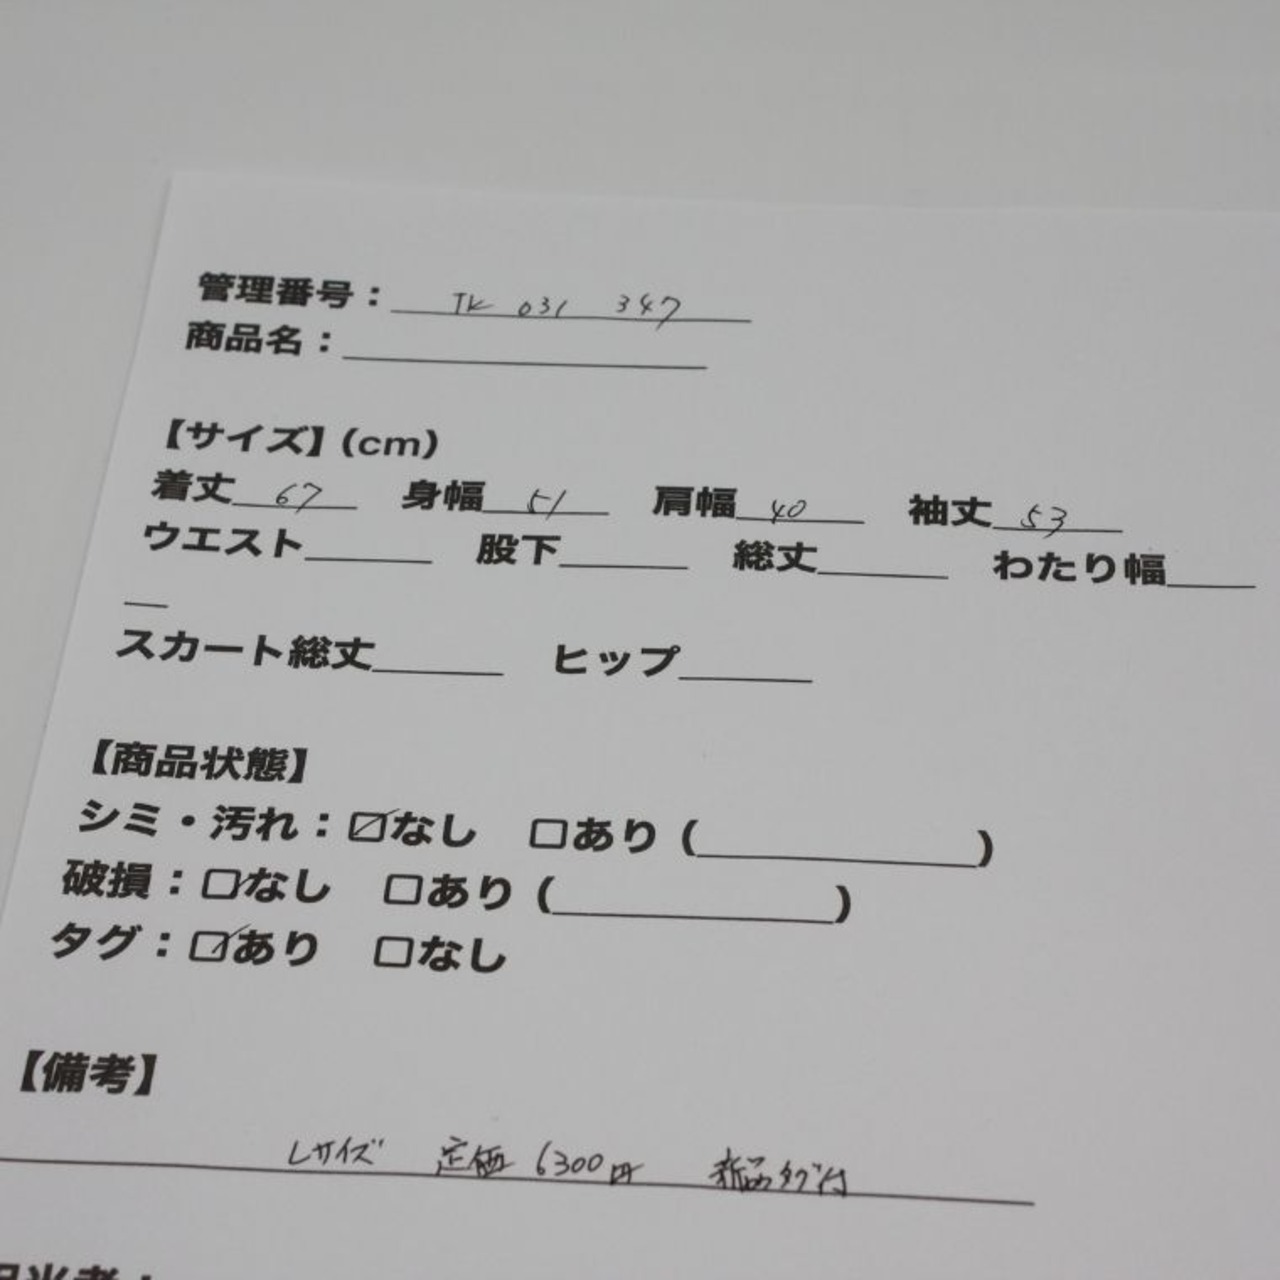 管理番号：TK 031 347
商品名：
【サイズ】(cm)
着丈 67 身幅 51 肩幅 40 袖丈 53
ウエスト 股下 総丈 わたり幅
スカート総丈 ヒップ
【商品状態】
シミ・汚れ：☑なし □あり（ ）
破損：☑なし □あり（ ）
タグ：☑あり □なし
【備考】
Lサイズ 定価6300円 新品タグ付
担当者：